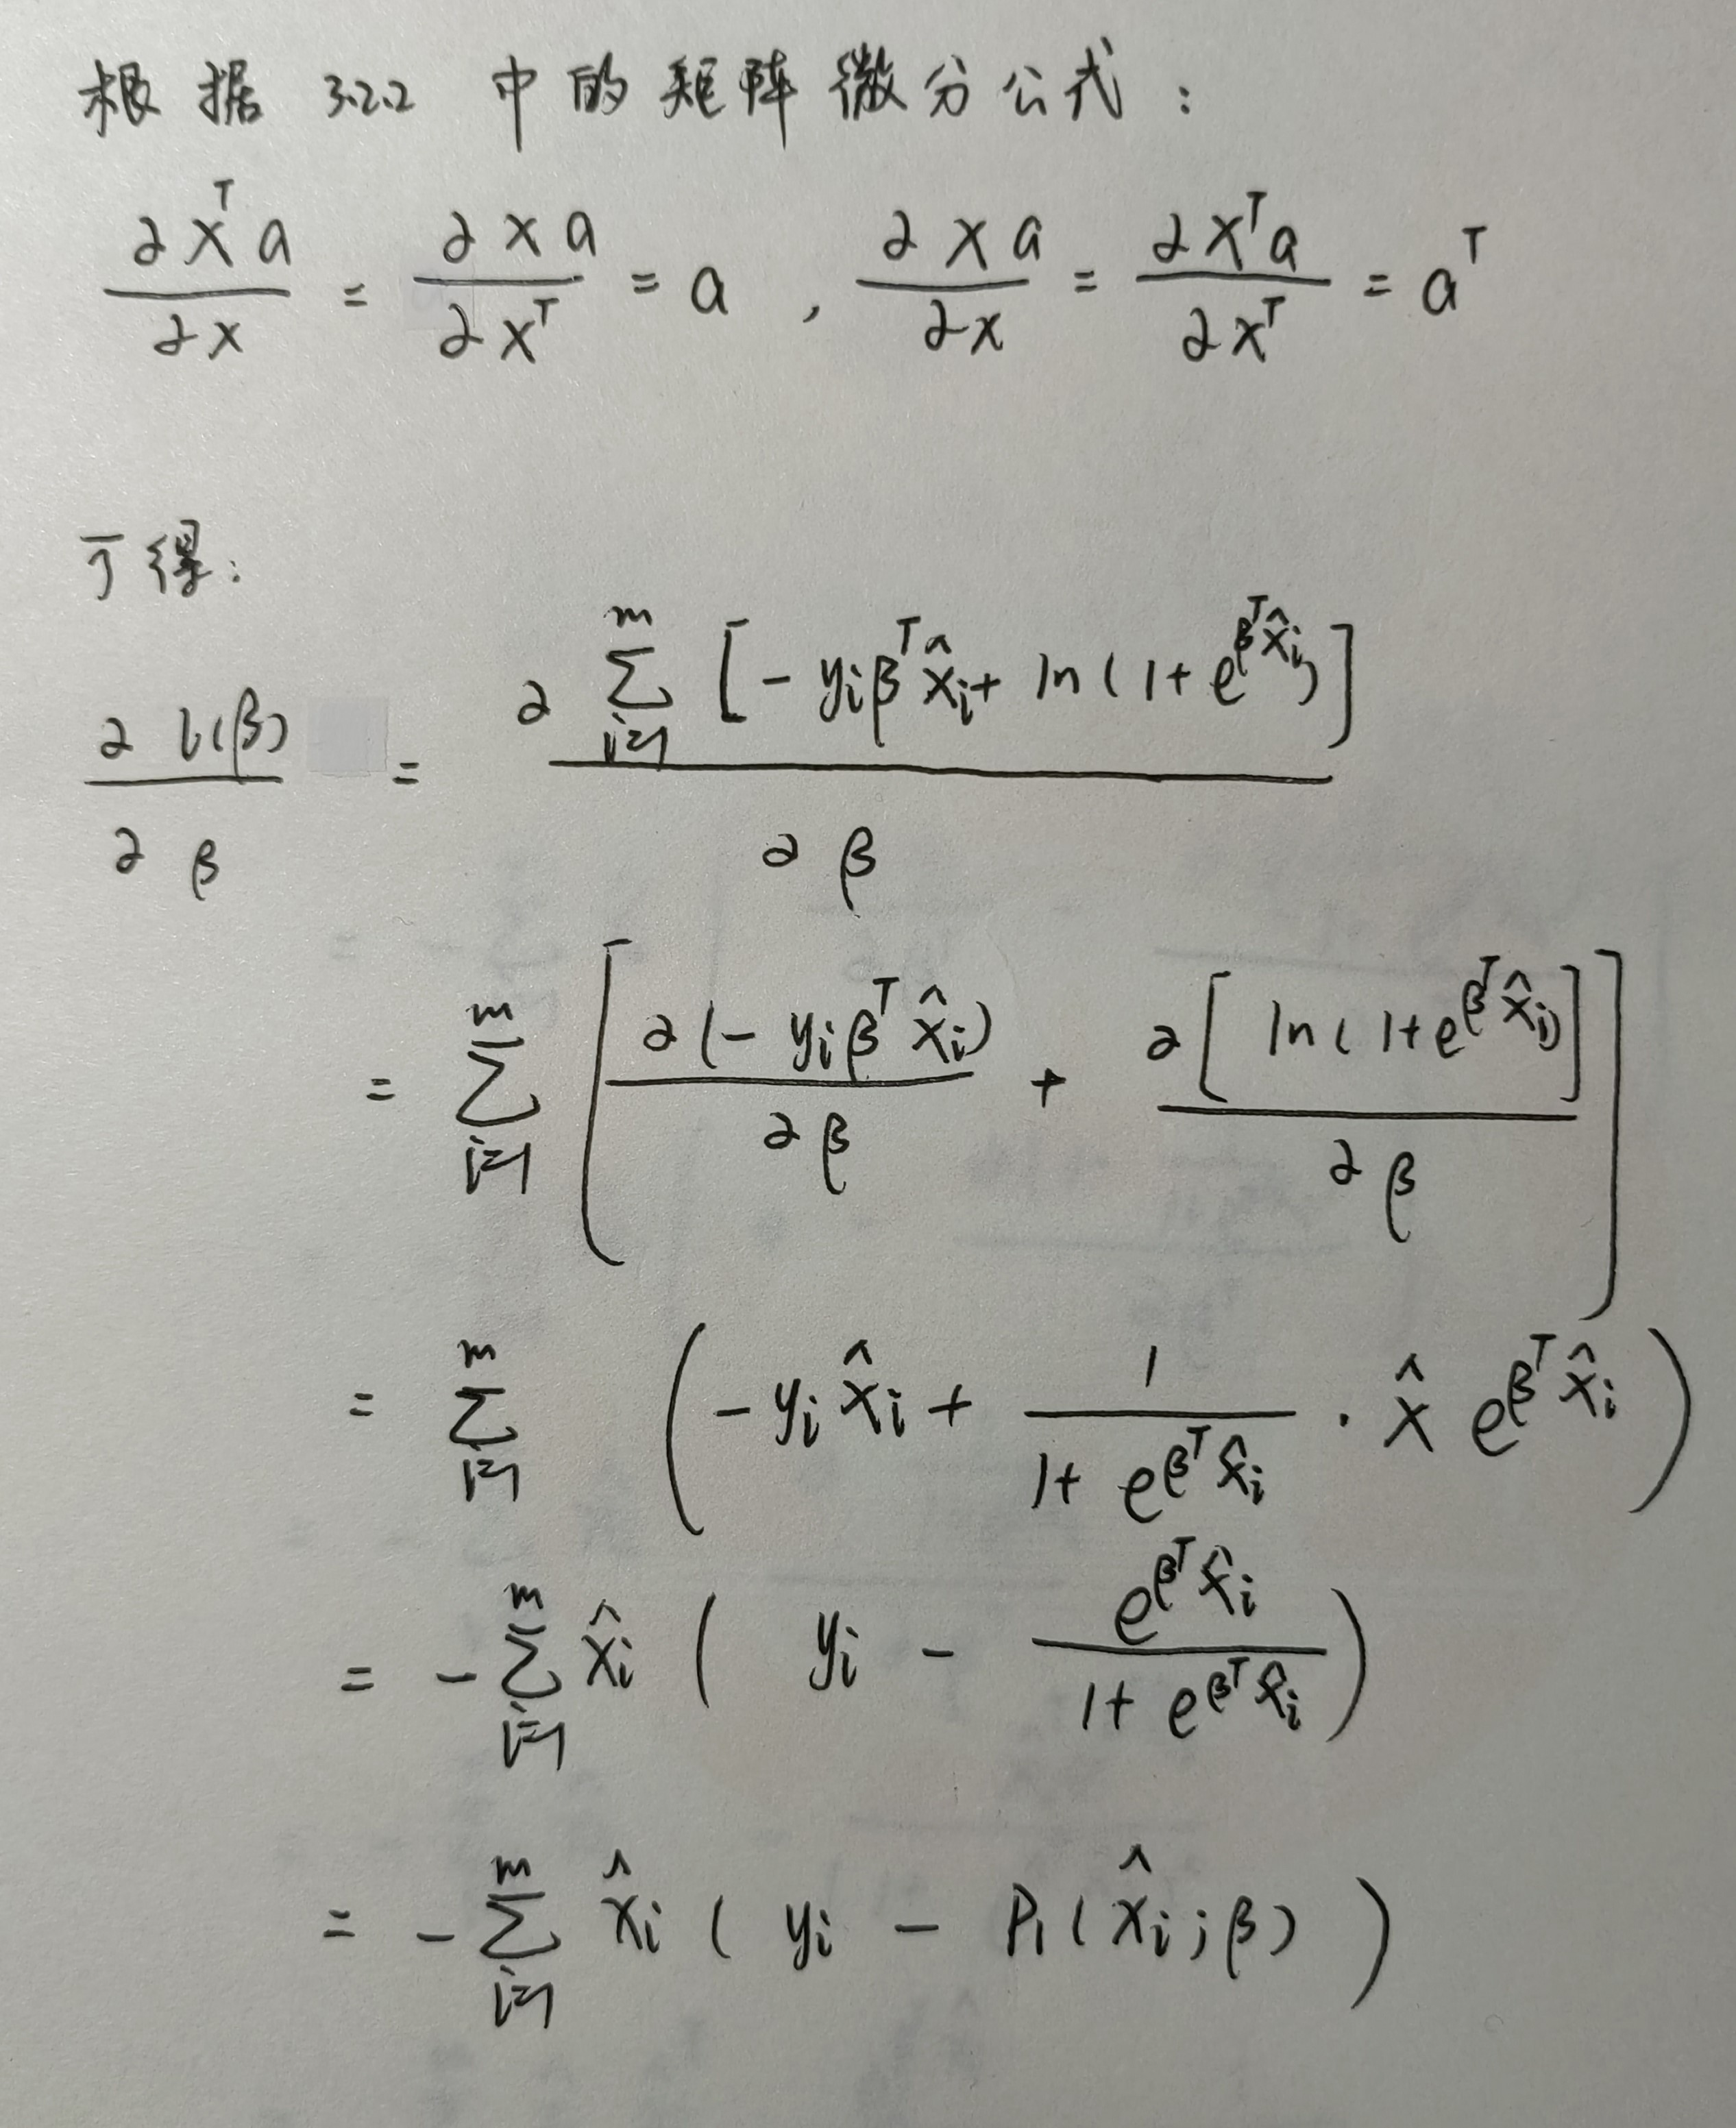 根据 3.2.2 中的矩阵微分公式:
∂x^T a / ∂x = ∂x a / ∂x^T = a , ∂x a / ∂x = ∂x^T a / ∂x^T = a^T
可得:
∂ l(β) / ∂ β = ∂ Σ_{i=1}^{m} [ - y_i β^T x̂_i + ln(1+e^{β^T x̂_i}) ] / ∂ β
= Σ_{i=1}^{m} [ ∂(- y_i β^T x̂_i) / ∂β + ∂[ ln(1+e^{β^T x̂_i}) ] / ∂β ]
= Σ_{i=1}^{m} ( - y_i x̂_i + 1 / (1+ e^{β^T x̂_i}) · x̂ e^{β^T x̂_i} )
= - Σ_{i=1}^{m} x̂_i ( y_i - e^{β^T x̂_i} / (1+ e^{β^T x̂_i}) )
= - Σ_{i=1}^{m} x̂_i ( y_i - P_1( x̂_i ; β ) )